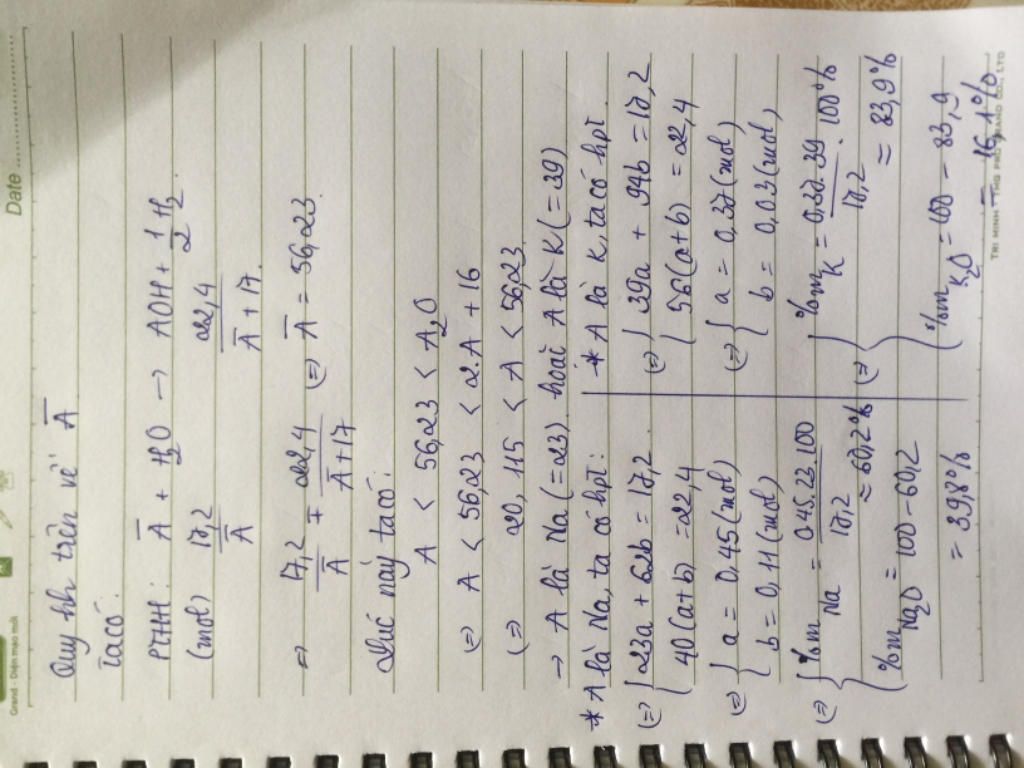 Date
Grand - Diện mạo mới
Quy hh trên về Ā
Ta có:
PTHH: Ā + H₂O → AOH + 1/2 H₂.
(mol) 17,2/Ā 22,4/(Ā + 17)
=> 17,2/Ā = 22,4/(Ā + 17) (=) Ā = 56,23.
Lúc này ta có:
A < 56,23 < A₂O
(=) A < 56,23 < 2.A + 16
(=) 20,115 < A < 56,23
→ A là Na (=23) hoặc A là K (=39)
* A là Na, ta có hpt:
(=) { 23a + 62b = 17,2
40(a+b) = 22,4
(=) { a = 0,45 (mol)
b = 0,11 (mol)
(=) { %m Na = 0,45.23.100/17,2
≈ 60,2%
%m Na₂O = 100 - 60,2
= 39,8%
* A là K, ta có hpt
(=) { 39a + 94b = 17,2
56(a+b) = 22,4
(=) { a = 0,37 (mol)
b = 0,03 (mol)
(=) { %m K = 0,37.39/17,2 . 100%
≈ 83,9%
%m K₂O = 100 - 83,9
= 16,1%